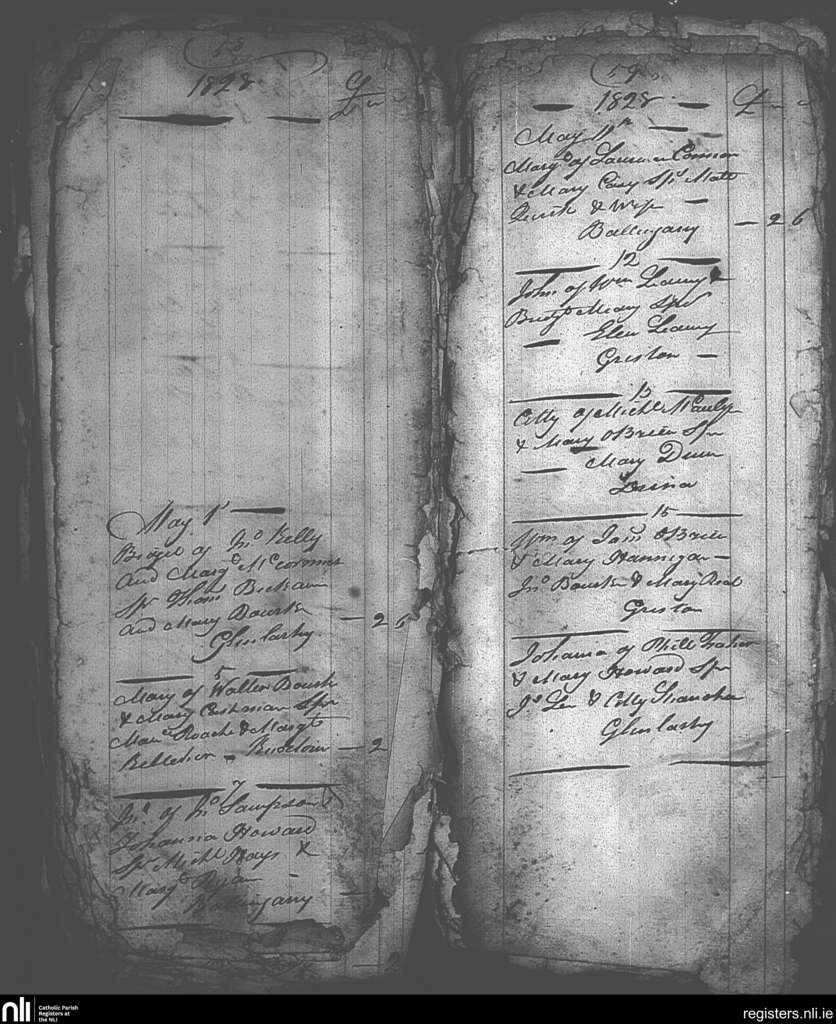 53
1828
May 1st
Bridget of Jno Kelly
and Margt McCormick
Spr Thos Beckam
and Mary Bourke
Glenlarhy
2 6
5
Mary of Walter Bourk
& Mary Cushman Spr
Maue Roache & Margt
2
7
Jno of Jno Sampson &
Johanna Howard
Spr Michl Hays &
Margt Ryan
Ballingarry
54
1828
May 11th
Margt of Laurence Connor
& Mary Casy Spr Matt
Quirk & Wife
Ballingarry
2 6
12
John of Wm Leamy &
Bridgt Meary Spr
Elen Leamy
Griston
13
Catty of Michl McCauly
& Mary OBrien Spr
Mary Dunn
15
Wm of Jams OBrien
& Mary Hannigan
Jno Bourke & Mary Real
Griston
Johanna of Phill Fraher
& Mary Howard Spr
Js Lee & Catty
Glenlarhy
nli
Catholic Parish
Registers at
the NLI
registers.nli.ie